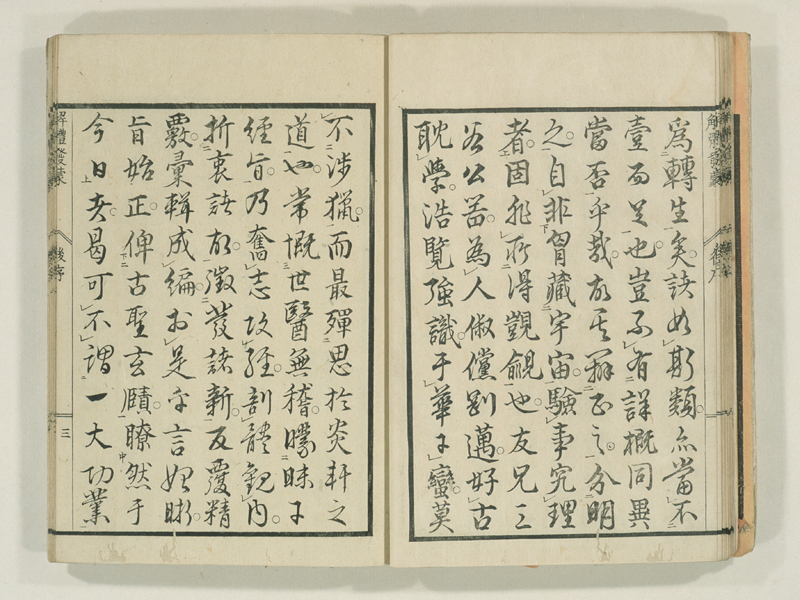 為轉生矣諸如斯類亦當不
壹而足也豈不有詳概同異
當否乎哉故其辯正之分明
之自非胷藏宇宙驗事究理
者固非所得覬覦也友兄三
谷公器為人俶儻剴邁好古
耽學浩覽強識于華于蠻莫
解體發蒙
後序
不涉獵而最殫思於炎軒之
道也常慨世醫無稽曚昧于
經旨乃奮志攻經剖體觀内
折衷諸故徵發諸新反覆精
覈彙輯成編於是乎言始晰
旨始正俾古聖玄賾瞭然于
今日者曷可不謂一大功業
解體發蒙
後序
三